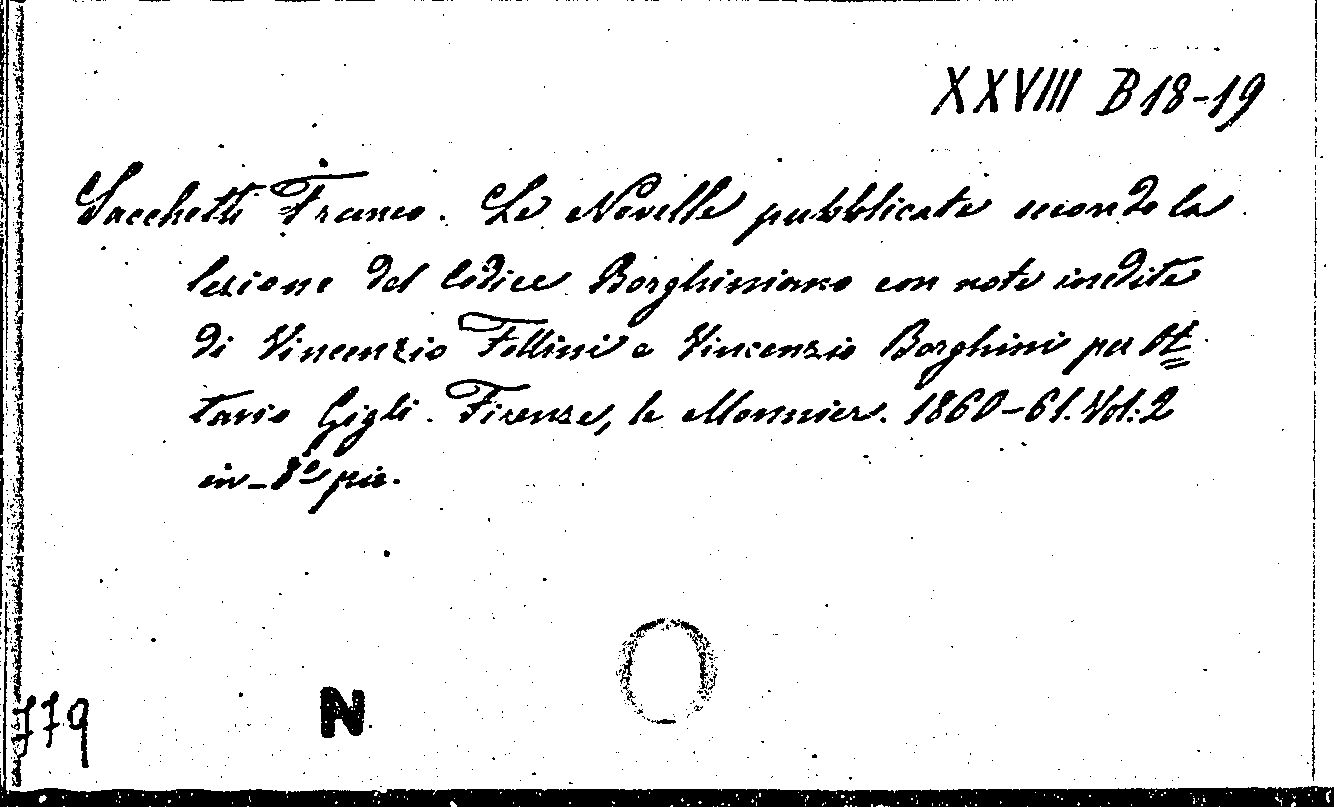 XXVIII B 18-19
Sacchetti Franco. Le Novelle pubblicate secondo la
lezione del Codice Borghiniano con note inedite
di Vincenzio Follini e Vincenzio Borghini per Ot=
tavio Gigli. Firenze, le Monnier. 1860-61. Vol: 2
in-8º pic.
779
N